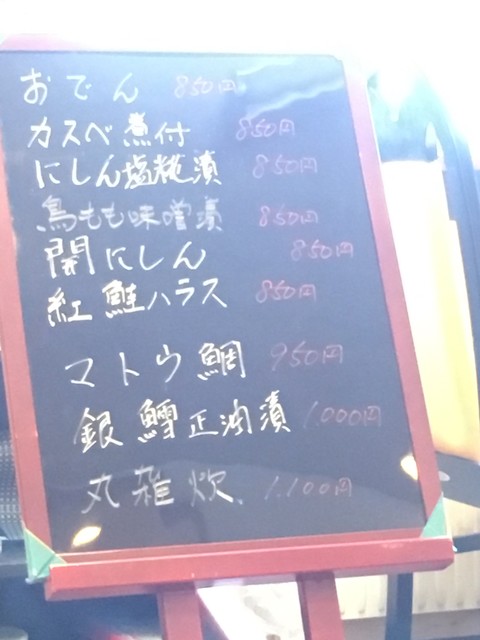 おでん 850円
カスベ煮付 850円
にしん塩糀漬 850円
鳥もも味噌漬 850円
開にしん 850円
紅鮭ハラス 850円
マトウ鯛 950円
銀鱈正油漬 1.000円
丸雑炊 1.100円